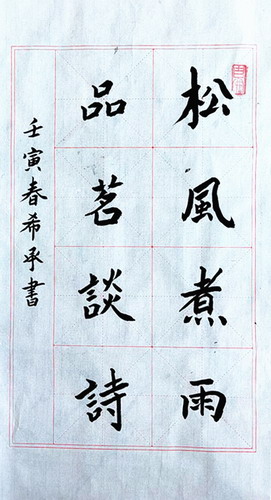 松風煮雨
品茗談詩
壬寅春希承書